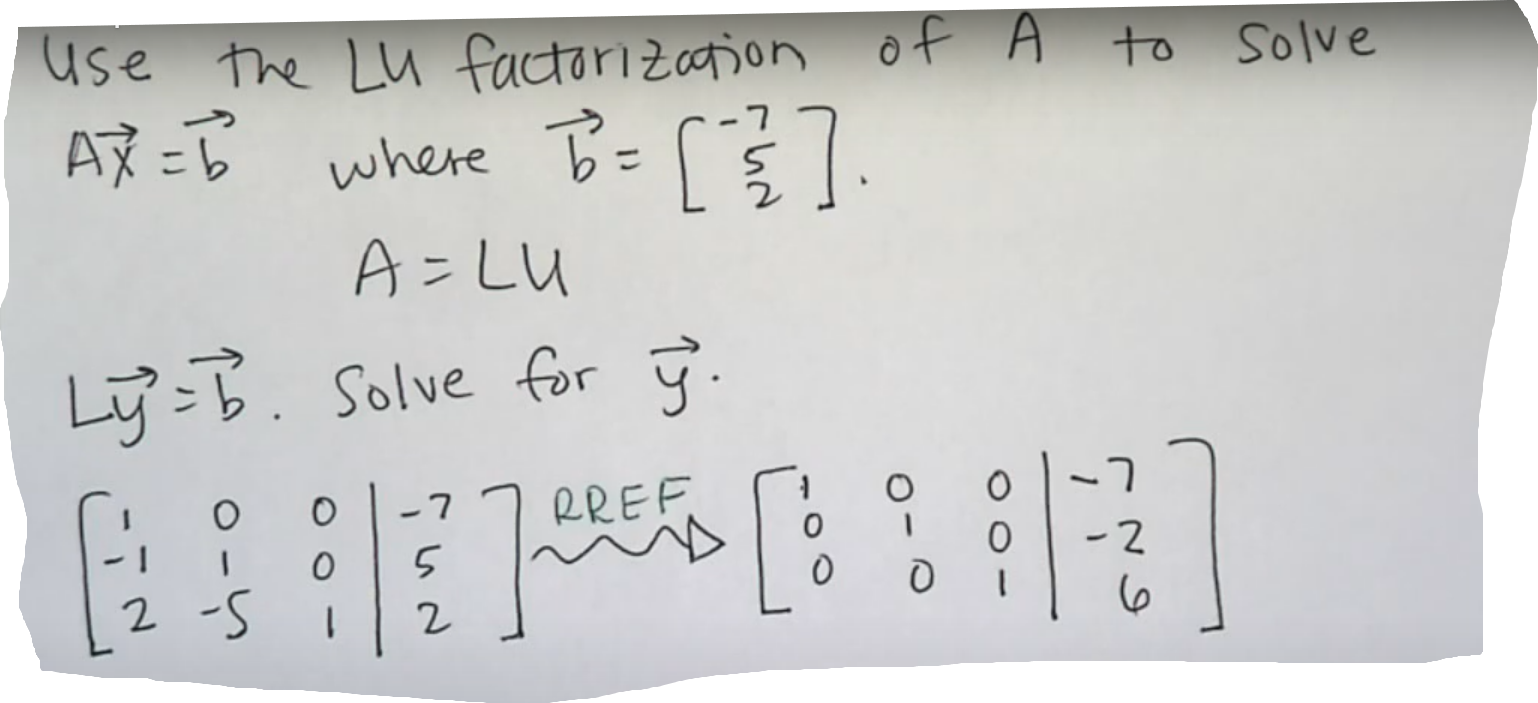 Use the LU factorization of A to solve
Ax⃗ = b⃗ where b⃗ = [-7 5 2].
A = LU
Ly⃗ = b⃗. Solve for y⃗.
[1 0 0 | -7] RREF [1 0 0 | -7]
[-1 1 0 | 5] [0 1 0 | -2]
[2 -5 1 | 2] [0 0 1 | 6]